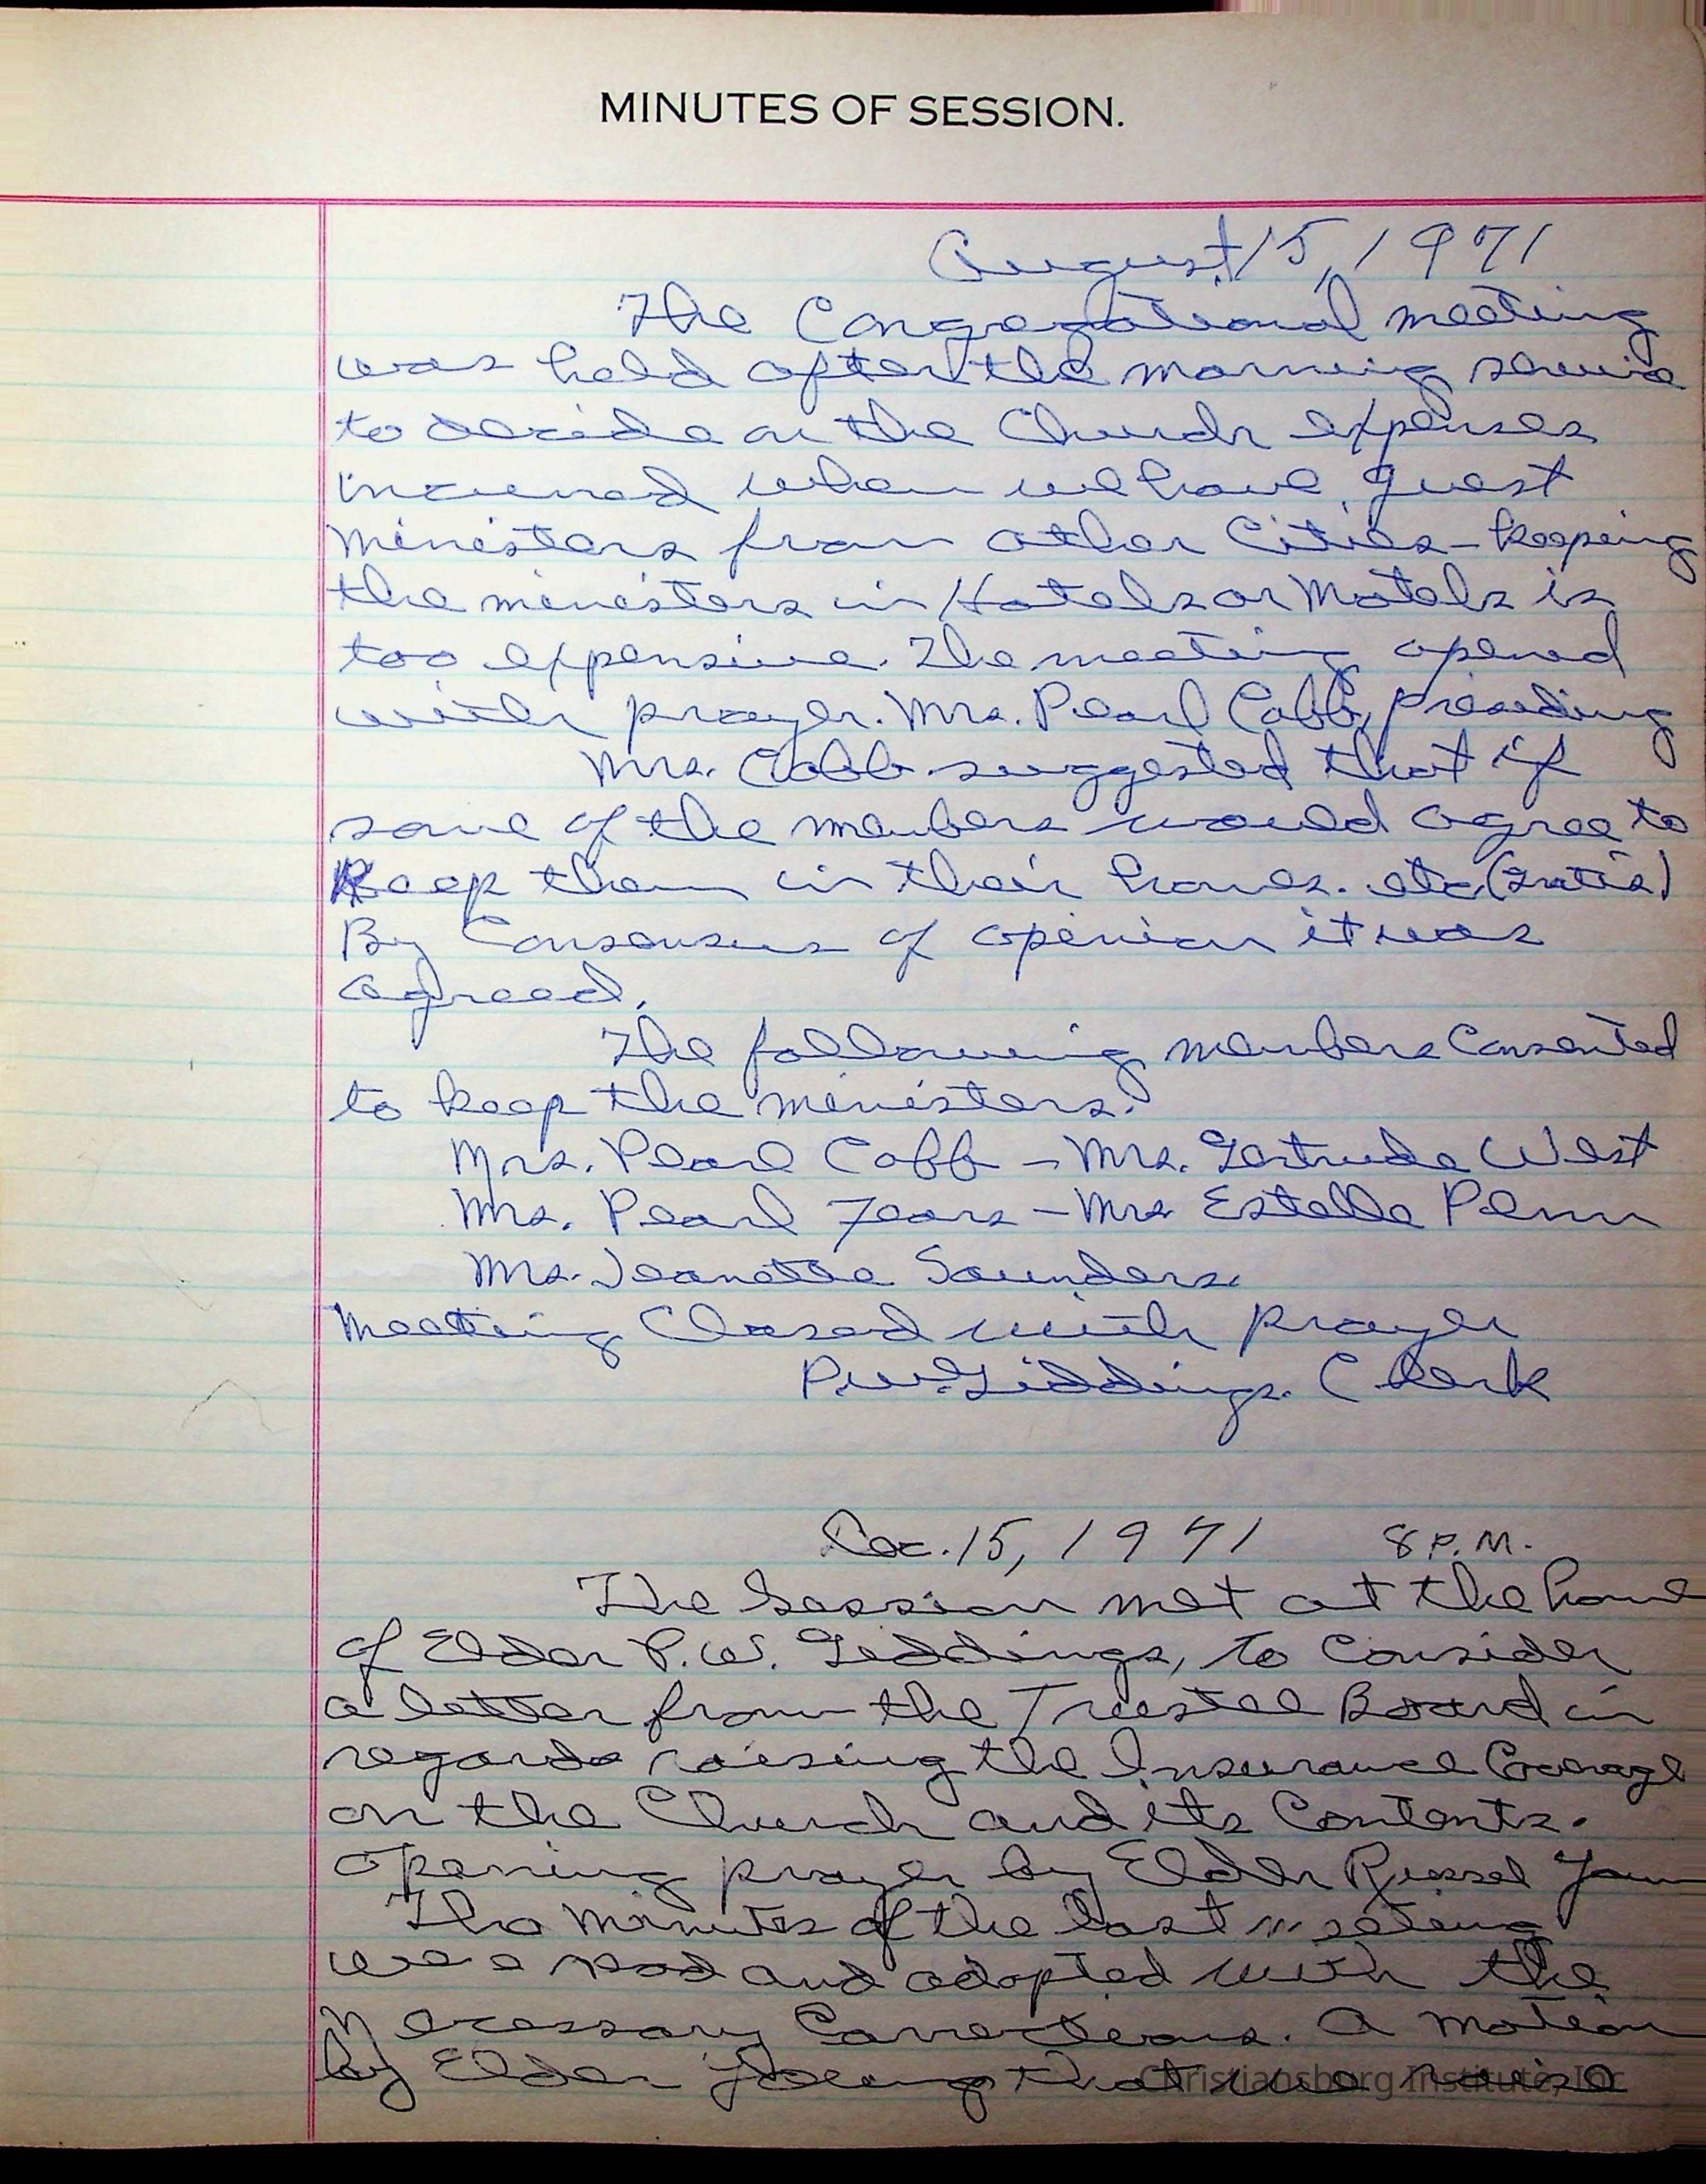 MINUTES OF SESSION.
August 15, 1971
The Congregational meeting
was held after the morning service
to decide on the Church expenses
incurred when we have guest
ministers from other Cities - keeping
the ministers in Hotels or Motels is
too expensive. The meeting opened
with prayer. Mrs. Pearl Cobb, presiding
Mrs. Cobb suggested that if
some of the members would agree to
Keep them in their homes. etc (gratis)
By Consensus of opinion it was
agreed.
The following members Consented
to keep the ministers.
Mrs. Pearl Cobb - Mrs. Gertrude West
Mrs. Pearl Fears - Mrs Estelle Penn
Mrs. Jeanette Saunders.
Meeting Closed with prayer
P.W. Giddings. Clerk
15, 1971 8 P.M.
The Session met at the home
of Elder P.W. Giddings, to Consider
a letter from the Trustee Board in
regards raising the Insurance Coverage
on the Church and its Contents.
Opening prayer by Elder Russel
The minutes of the last meeting
were read and adopted with the
necessary Corrections. A motion
by Elder Young that we raise
Christiansburg Institute, Inc